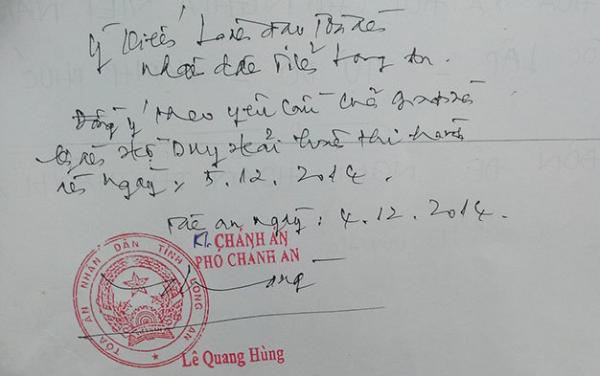 Ý kiến Lãnh đạo Tòa án
nhân dân tỉnh Long An.
Đồng ý theo yêu cầu của gia đình
Hồ Duy Hải hoãn thi hành
án ngày: 5.12.2014.
Tân an ngày: 4.12.2014.
Kt. CHÁNH ÁN
PHÓ CHÁNH ÁN
TÒA ÁN NHÂN DÂN TỈNH LONG AN
Lê Quang Hùng